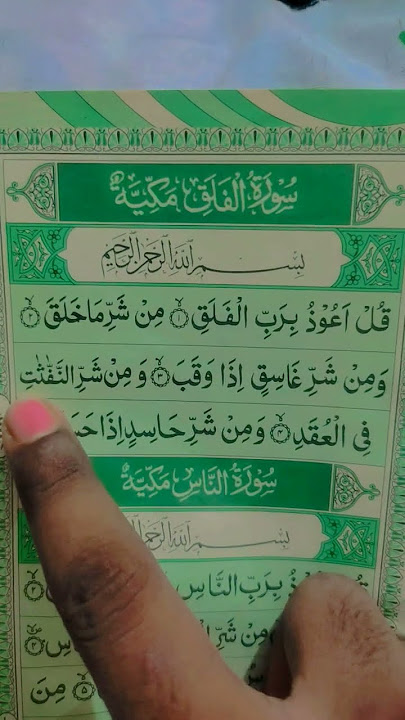 سُورَةُ الْفَلَقِ مَكِّيَّةٌ
بِسْمِ اللّٰهِ الرَّحْمٰنِ الرَّحِيْمِ
قُلْ اَعُوْذُ بِرَبِّ الْفَلَقِ ۝١ مِنْ شَرِّ مَا خَلَقَ ۝٢
وَمِنْ شَرِّ غَاسِقٍ اِذَا وَقَبَ ۝٣ وَمِنْ شَرِّ النَّفّٰثٰتِ
فِى الْعُقَدِ ۝٤ وَمِنْ شَرِّ حَاسِدٍ اِذَا
سُورَةُ النَّاسِ مَكِّيَّةٌ
بِسْمِ اللّٰهِ
بِرَبِّ النَّاسِ
مِنْ شَرِّ
۝٥ مِنَ